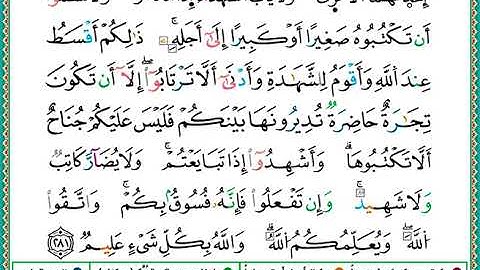 أَن تَكْتُبُوهُ صَغِيرًا أَوْ كَبِيرًا إِلَىٰٓ أَجَلِهِۦۚ ذَٰلِكُمْ أَقْسَطُ
عِندَ ٱللَّهِ وَأَقْوَمُ لِلشَّهَٰدَةِ وَأَدْنَىٰٓ أَلَّا تَرْتَابُوٓا۟ۖ إِلَّآ أَن تَكُونَ
تِجَٰرَةً حَاضِرَةً تُدِيرُونَهَا بَيْنَكُمْ فَلَيْسَ عَلَيْكُمْ جُنَاحٌ
أَلَّا تَكْتُبُوهَاۗ وَأَشْهِدُوٓا۟ إِذَا تَبَايَعْتُمْۚ وَلَا يُضَآرَّ كَاتِبٌ
وَلَا شَهِيدٌۚ وَإِن تَفْعَلُوا۟ فَإِنَّهُۥ فُسُوقٌۢ بِكُمْۗ وَٱتَّقُوا۟
ٱللَّهَۖ وَيُعَلِّمُكُمُ ٱللَّهُۗ وَٱللَّهُ بِكُلِّ شَىْءٍ عَلِيمٌ ٢٨١